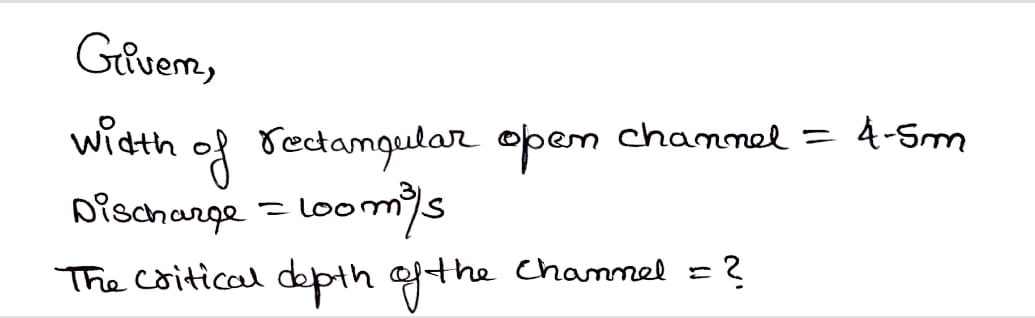 Given,
width of rectangular open channel = 4.5m
Discharge = 100m³/s
The critical depth of the channel = ?